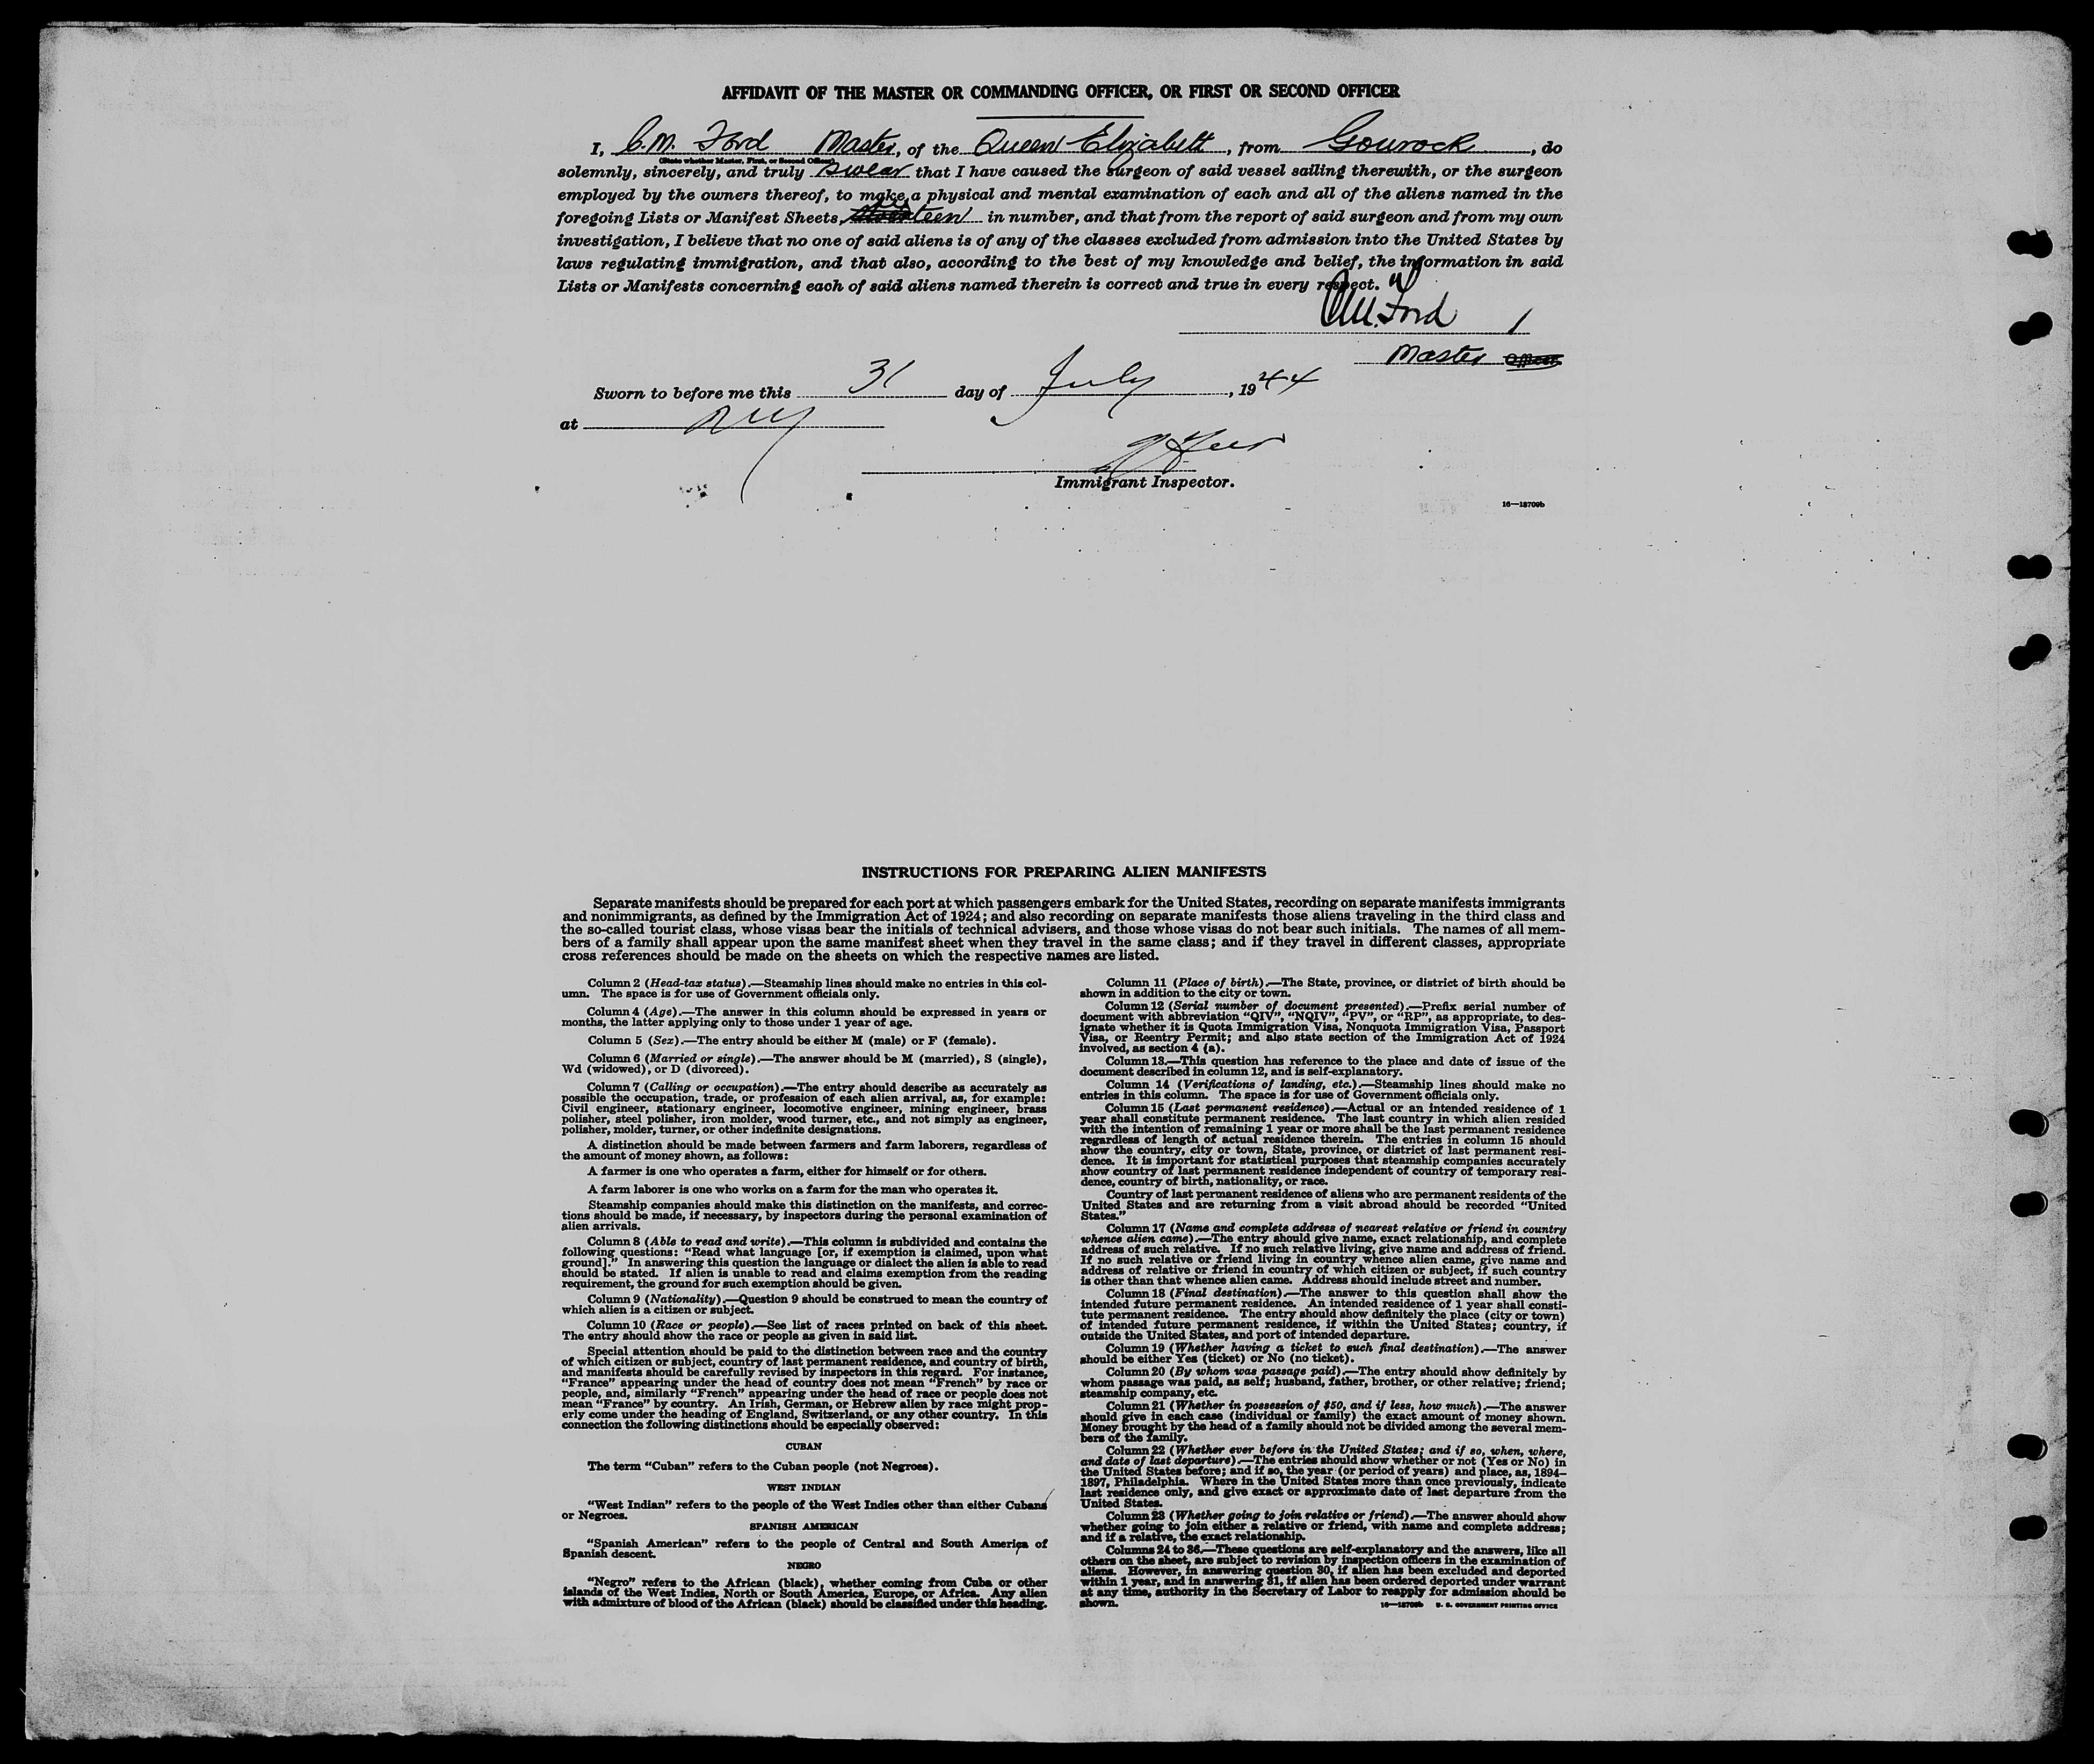 AFFIDAVIT OF THE MASTER OR COMMANDING OFFICER, OR FIRST OR SECOND OFFICER
I, C.M. Ford Master, of the Queen Elizabeth, from Gourock, do
(State whether Master, First, or Second Officer)
solemnly, sincerely, and truly swear that I have caused the surgeon of said vessel sailing therewith, or the surgeon
employed by the owners thereof, to make a physical and mental examination of each and all of the aliens named in the
foregoing Lists or Manifest Sheets, in number, and that from the report of said surgeon and from my own
investigation, I believe that no one of said aliens is of any of the classes excluded from admission into the United States by
laws regulating immigration, and that also, according to the best of my knowledge and belief, the information in said
Lists or Manifests concerning each of said aliens named therein is correct and true in every respect.
C.M. Ford
Master Officer.
Sworn to before me this 31 day of July, 1944
at NY
Immigrant Inspector.
16—18709b
INSTRUCTIONS FOR PREPARING ALIEN MANIFESTS
Separate manifests should be prepared for each port at which passengers embark for the United States, recording on separate manifests immigrants
and nonimmigrants, as defined by the Immigration Act of 1924; and also recording on separate manifests those aliens traveling in the third class and
the so-called tourist class, whose visas bear the initials of technical advisers, and those whose visas do not bear such initials. The names of all mem-
bers of a family shall appear upon the same manifest sheet when they travel in the same class; and if they travel in different classes, appropriate
cross references should be made on the sheets on which the respective names are listed.
Column 2 (Head-tax status).—Steamship lines should make no entries in this col-
umn. The space is for use of Government officials only.
Column 4 (Age).—The answer in this column should be expressed in years or
months, the latter applying only to those under 1 year of age.
Column 5 (Sex).—The entry should be either M (male) or F (female).
Column 6 (Married or single).—The answer should be M (married), S (single),
Wd (widowed), or D (divorced).
Column 7 (Calling or occupation).—The entry should describe as accurately as
possible the occupation, trade, or profession of each alien arrival, as, for example:
Civil engineer, stationary engineer, locomotive engineer, mining engineer, brass
polisher, steel polisher, iron molder, wood turner, etc., and not simply as engineer,
polisher, molder, turner, or other indefinite designations.
A distinction should be made between farmers and farm laborers, regardless of
the amount of money shown, as follows:
A farmer is one who operates a farm, either for himself or for others.
A farm laborer is one who works on a farm for the man who operates it.
Steamship companies should make this distinction on the manifests, and correc-
tions should be made, if necessary, by inspectors during the personal examination of
alien arrivals.
Column 8 (Able to read and write).—This column is subdivided and contains the
following questions: "Read what language [or, if exemption is claimed, upon what
ground]." In answering this question the language or dialect the alien is able to read
should be stated. If alien is unable to read and claims exemption from the reading
requirement, the ground for such exemption should be given.
Column 9 (Nationality).—Question 9 should be construed to mean the country of
which alien is a citizen or subject.
Column 10 (Race or people).—See list of races printed on back of this sheet.
The entry should show the race or people as given in said list.
Special attention should be paid to the distinction between race and the country
of which citizen or subject, country of last permanent residence, and country of birth,
and manifests should be carefully revised by inspectors in this regard. For instance,
"France" appearing under the head of country does not mean "French" by race or
people, and, similarly "French" appearing under the head of race or people does not
mean "France" by country. An Irish, German, or Hebrew alien by race might prop-
erly come under the heading of England, Switzerland, or any other country. In this
connection the following distinctions should be especially observed:
CUBAN
The term "Cuban" refers to the Cuban people (not Negroes).
WEST INDIAN
"West Indian" refers to the people of the West Indies other than either Cubans
or Negroes.
SPANISH AMERICAN
"Spanish American" refers to the people of Central and South America of
Spanish descent.
NEGRO
"Negro" refers to the African (black), whether coming from Cuba or other
islands of the West Indies, North or South America, Europe, or Africa. Any alien
with admixture of blood of the African (black) should be classified under this heading.
Column 11 (Place of birth).—The State, province, or district of birth should be
shown in addition to the city or town.
Column 12 (Serial number of document presented).—Prefix serial number of
document with abbreviation "QIV", "NQIV", "PV", or "RP", as appropriate, to des-
ignate whether it is Quota Immigration Visa, Nonquota Immigration Visa, Passport
Visa, or Reentry Permit; and also state section of the Immigration Act of 1924
involved, as section 4 (a).
Column 13.—This question has reference to the place and date of issue of the
document described in column 12, and is self-explanatory.
Column 14 (Verifications of landing, etc.).—Steamship lines should make no
entries in this column. The space is for use of Government officials only.
Column 15 (Last permanent residence).—Actual or an intended residence of 1
year shall constitute permanent residence. The last country in which alien resided
with the intention of remaining 1 year or more shall be the last permanent residence
regardless of length of actual residence therein. The entries in column 15 should
show the country, city or town, State, province, or district of last permanent resi-
dence. It is important for statistical purposes that steamship companies accurately
show country of last permanent residence independent of country of temporary resi-
dence, country of birth, nationality, or race.
Country of last permanent residence of aliens who are permanent residents of the
United States and are returning from a visit abroad should be recorded "United
States."
Column 17 (Name and complete address of nearest relative or friend in country
whence alien came).—The entry should give name, exact relationship, and complete
address of such relative. If no such relative living, give name and address of friend.
If no such relative or friend living in country whence alien came, give name and
address of relative or friend in country of which citizen or subject, if such country
is other than that whence alien came. Address should include street and number.
Column 18 (Final destination).—The answer to this question shall show the
intended future permanent residence. An intended residence of 1 year shall consti-
tute permanent residence. The entry should show definitely the place (city or town)
of intended future permanent residence, if within the United States; country, if
outside the United States, and port of intended departure.
Column 19 (Whether having a ticket to such final destination).—The answer
should be either Yes (ticket) or No (no ticket).
Column 20 (By whom was passage paid).—The entry should show definitely by
whom passage was paid, as self; husband, father, brother, or other relative; friend;
steamship company, etc.
Column 21 (Whether in possession of $50, and if less, how much).—The answer
should give in each case (individual or family) the exact amount of money shown.
Money brought by the head of a family should not be divided among the several mem-
bers of the family.
Column 22 (Whether ever before in the United States; and if so, when, where,
and date of last departure).—The entries should show whether or not (Yes or No) in
the United States before; and if so, the year (or period of years) and place, as, 1894–
1897, Philadelphia. Where in the United States more than once previously, indicate
last residence only, and give exact or approximate date of last departure from the
United States.
Column 23 (Whether going to join relative or friend).—The answer should show
whether going to join either a relative or friend, with name and complete address;
and if a relative, the exact relationship.
Columns 24 to 36.—These questions are self-explanatory and the answers, like all
others on the sheet, are subject to revision by inspection officers in the examination of
aliens. However, in answering question 30, if alien has been excluded and deported
within 1 year, and in answering 31, if alien has been ordered deported under warrant
at any time, authority in the Secretary of Labor to reapply for admission should be
shown.
16—18709b U. S. GOVERNMENT PRINTING OFFICE